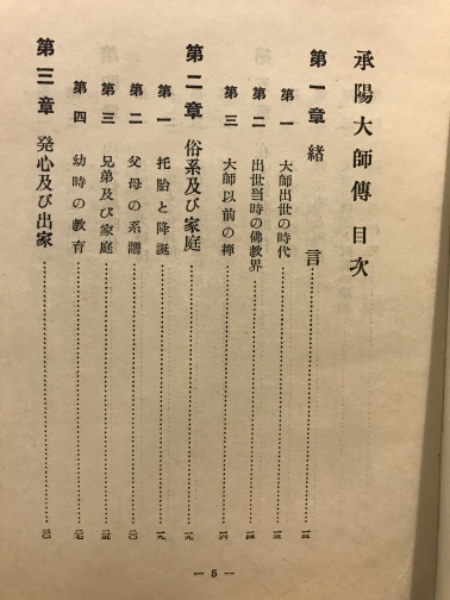 承陽大師傳 目次
第一章 緒言
第一 大師出世の時代
第二 出世当時の佛教界
第三 大師以前の禅
第二章 俗系及び家庭 一九
第一 托胎と降誕 一九
第二 父母の系譜 二〇
第三 兄弟及び家庭 二五
第四 幼時の教育 二七
第三章 発心及び出家
— 5 —